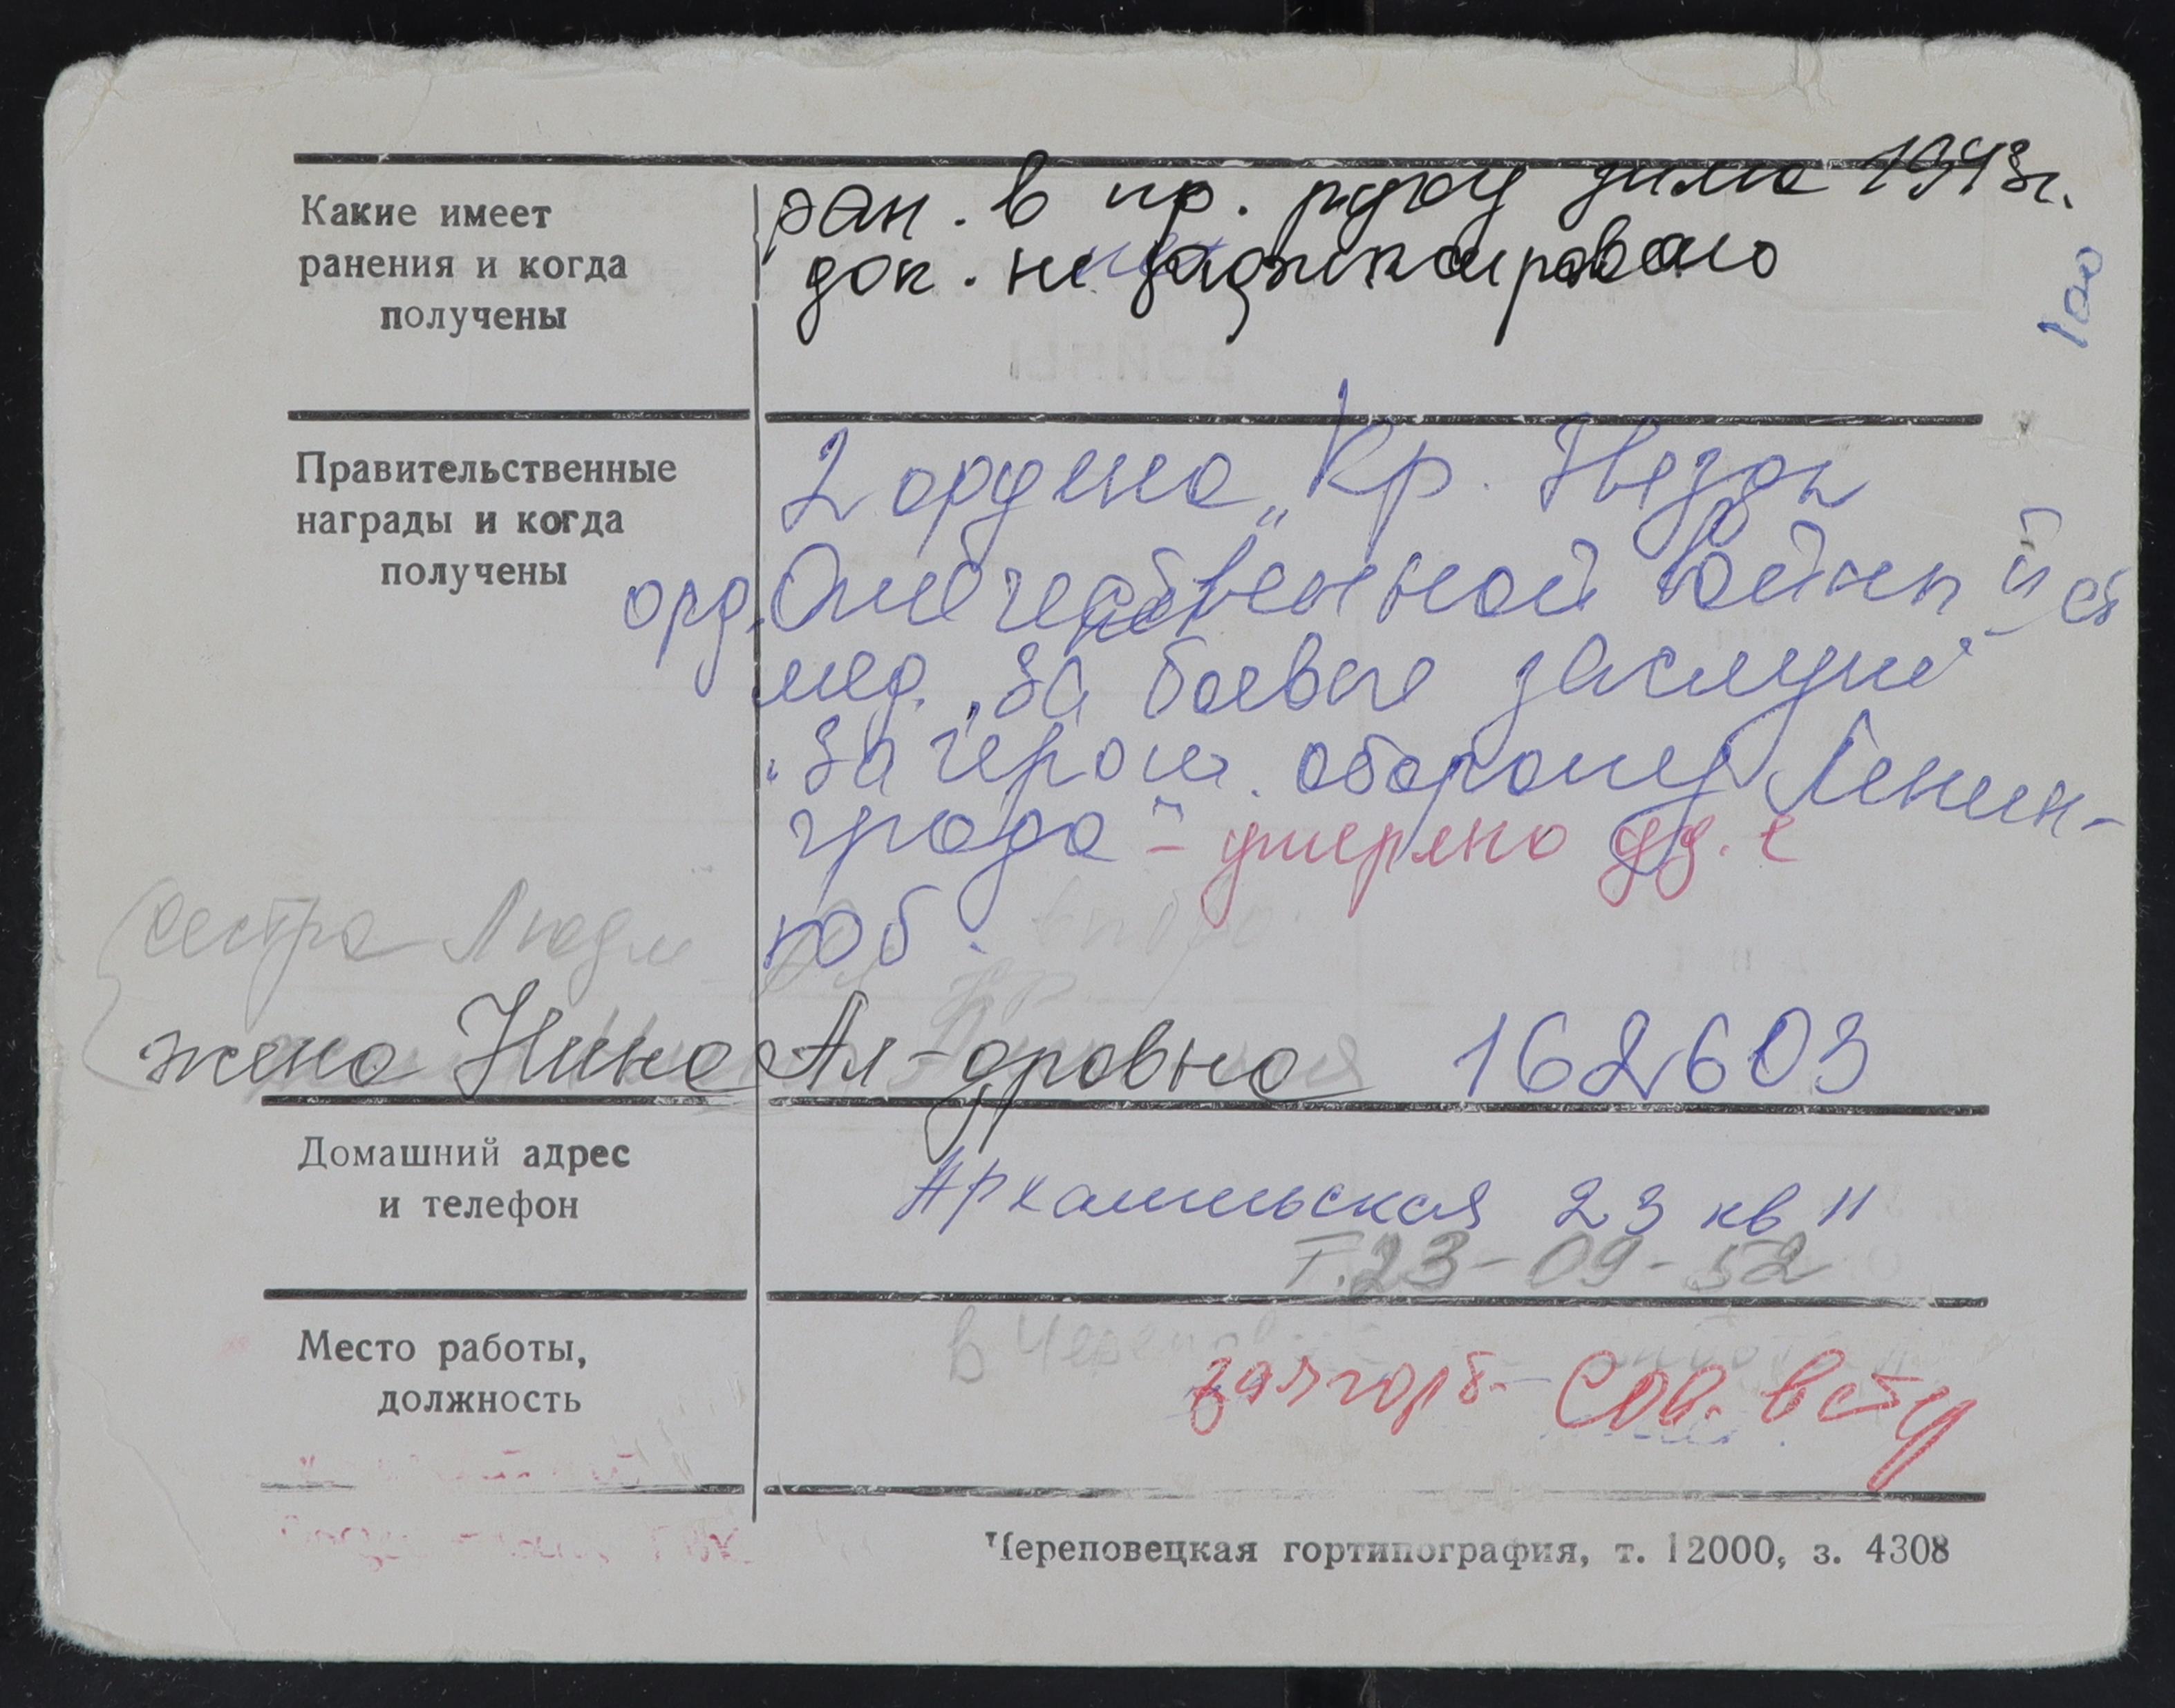 Какие имеет
ранения и когда
получены
ран. в пр. руку зима 1943г.
док. не зафиксировано
100
Правительственные
награды и когда
получены
2 ордена „Кр. Звезды
орд. Отечественной войны II ст
мед. „За боевые заслуги"
„За героич. оборону Ленин-
града" - утеряно уд. е
юб.
сестра Людм
жена Нина Ал-дровна 162603
Домашний адрес
и телефон
Архангельская 23 кв 11
Т. 23-09-52
Место работы,
должность
в Черепов
Сов. в ст
Череповецкая гортипография, т. 12000, з. 4308